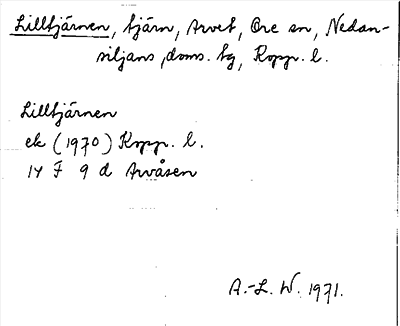 Lilltjärnen, tjärn, Arvet, Ore sn, Nedan-
siljans, doms. tg, Kopp. l.
Lilltjärnen
ek (1970) Kopp. l.
14 F 9 d Arvåsen
A.-L. W. 1971.